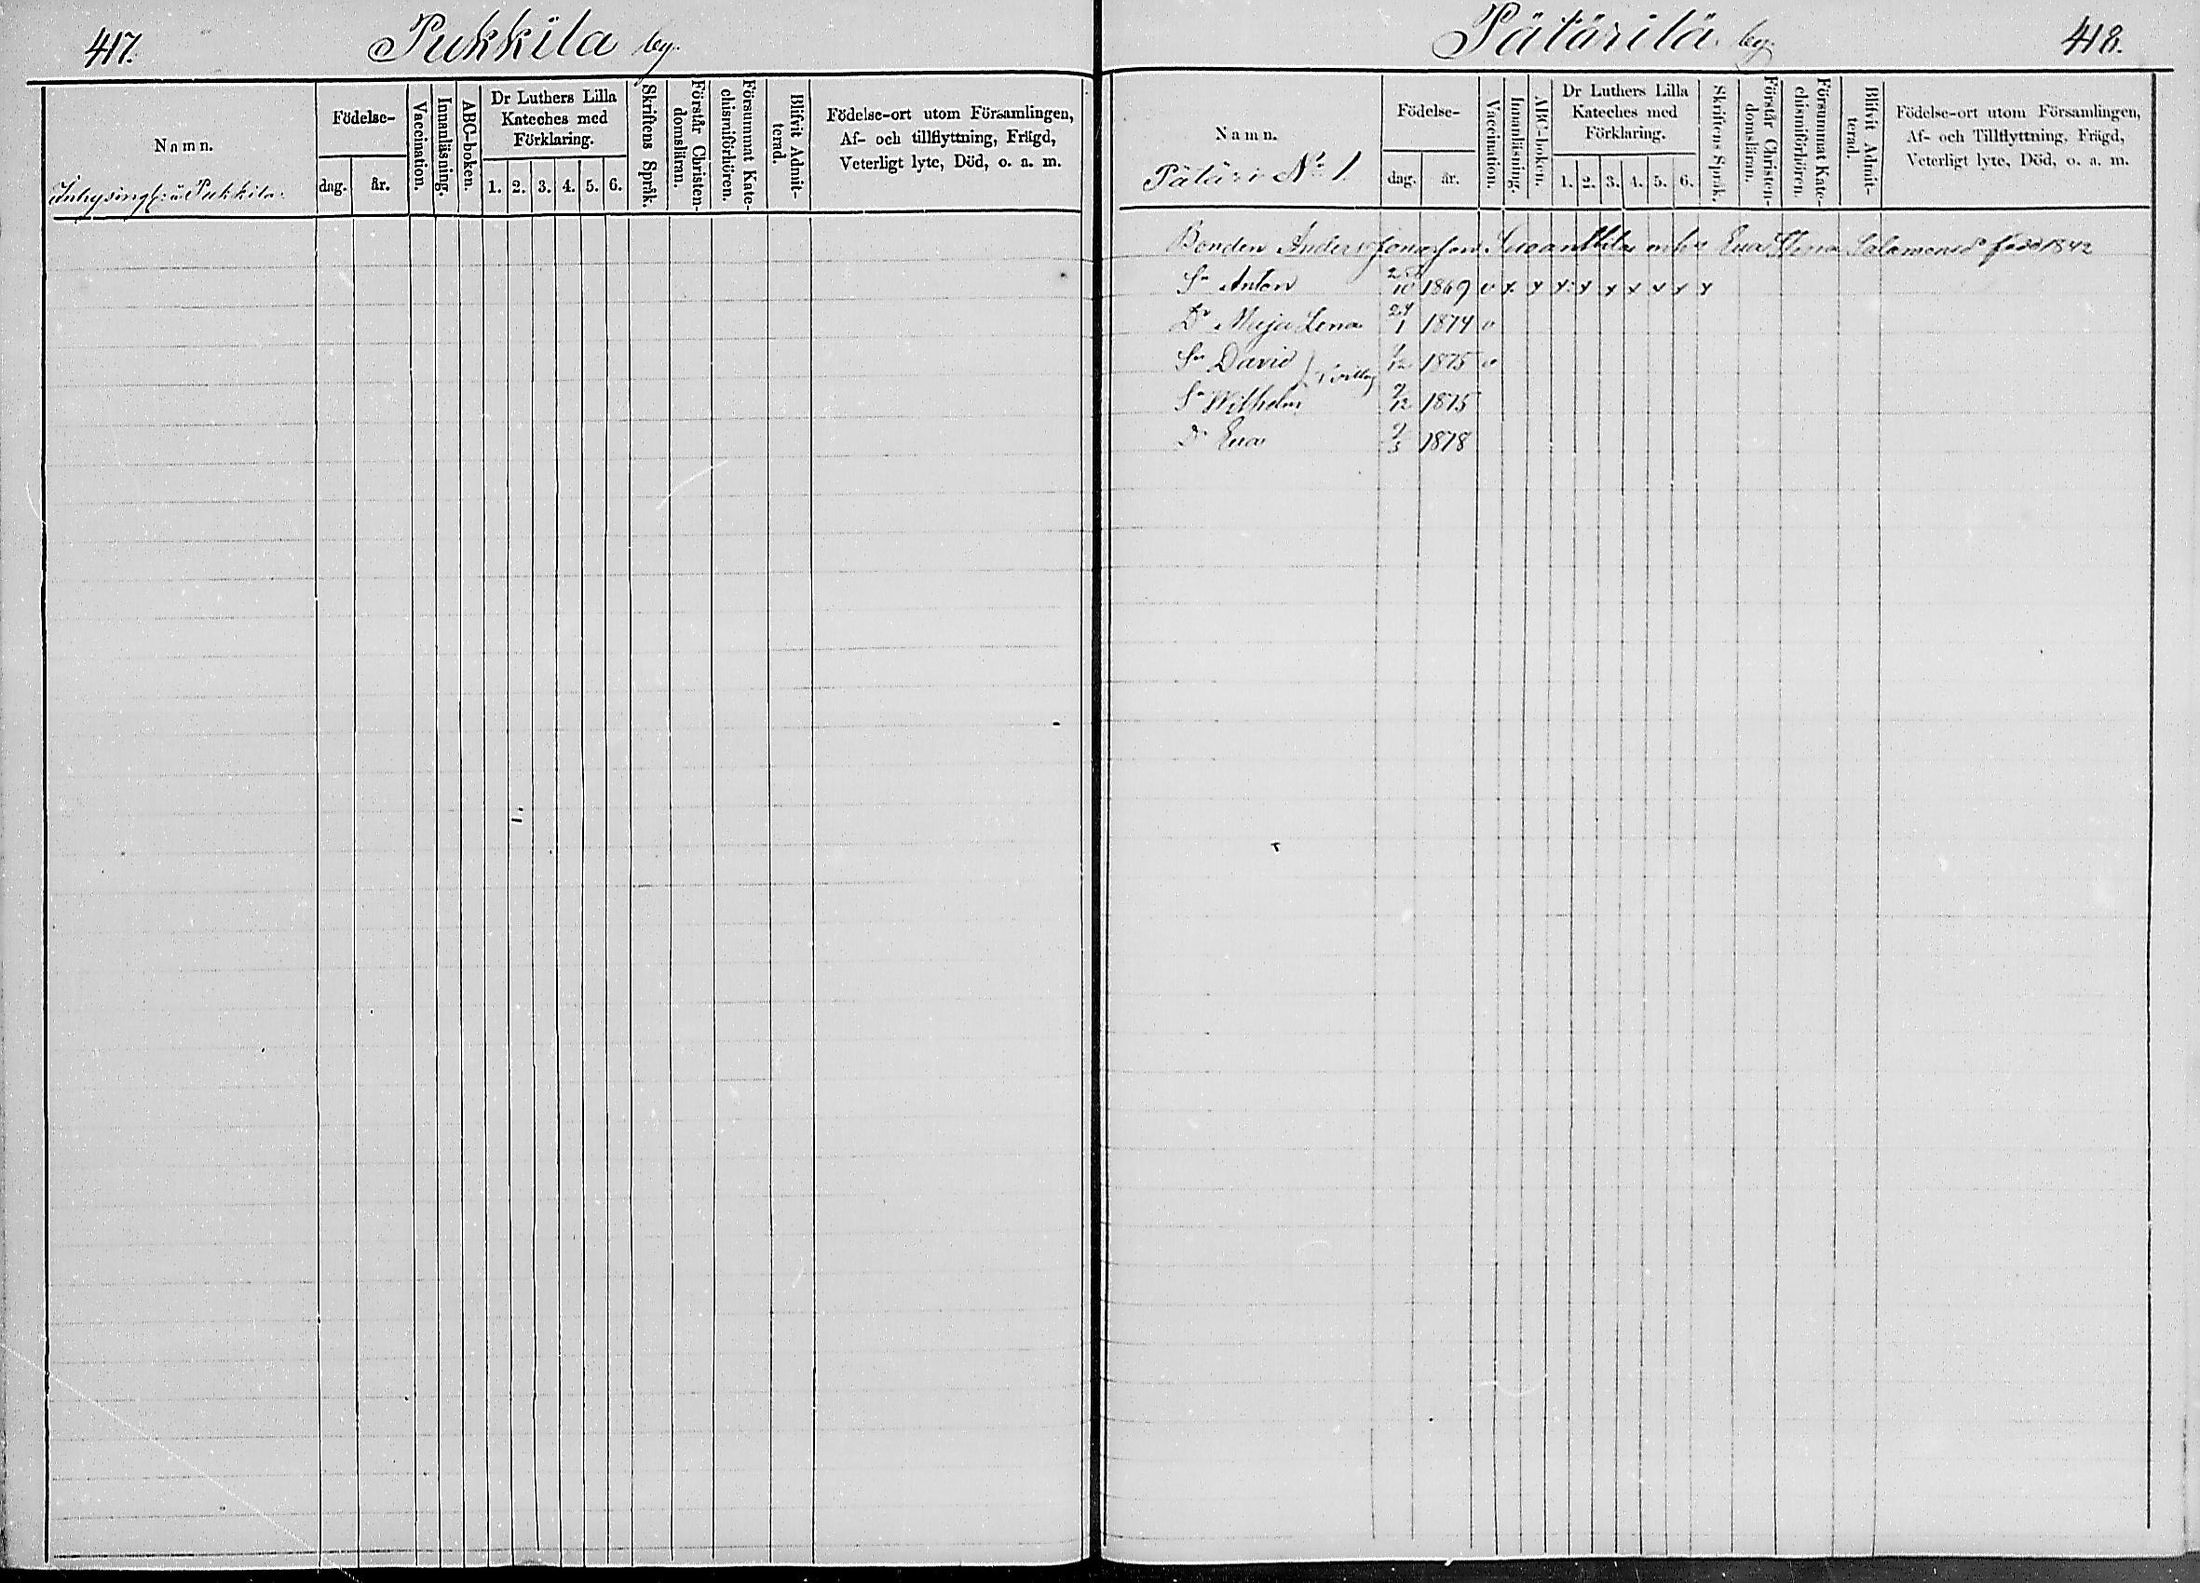 417.
Pukkila by.
Namn.
Inhysingar i Pukkila.
Födelse-
dag. år.
Vaccination.
Innanläsning.
ABC-boken.
Dr Luthers Lilla
Kateches med
Förklaring.
1. 2. 3. 4. 5. 6.
Skriftens Språk.
Förstår Christen-
domsläran.
Försummat Kate-
chismiförhören.
Blifvit Admit-
terad.
Födelse-ort utom Församlingen,
Af- och tillflyttning, Frägd,
Veterligt lyte, Död, o. a. m.
Pätärilä by.
418.
Namn.
Pätäri No 1
Födelse-
dag. år.
Vaccination.
Innanläsning.
ABC-boken.
Dr Luthers Lilla
Kateches med
Förklaring.
1. 2. 3. 4. 5. 6.
Skriftens Språk.
Förstår Christen-
domsläran.
Försummat Kate-
chismiförhören.
Blifvit Admit-
terad.
Födelse-ort utom Församlingen,
Af- och Tillflyttning, Frägd,
Veterligt lyte, Död, o. a. m.
Bonden Anders Eva Stina Salomonsdr född 1842
Sn Anton 10 1869 v x x x x x x x x x
Dr Maja Lena 24/1 1874 v
Sn David /12 1875 v
Tvilling
Sn Wilhelm /12 1875
Dr Eva /3 1878